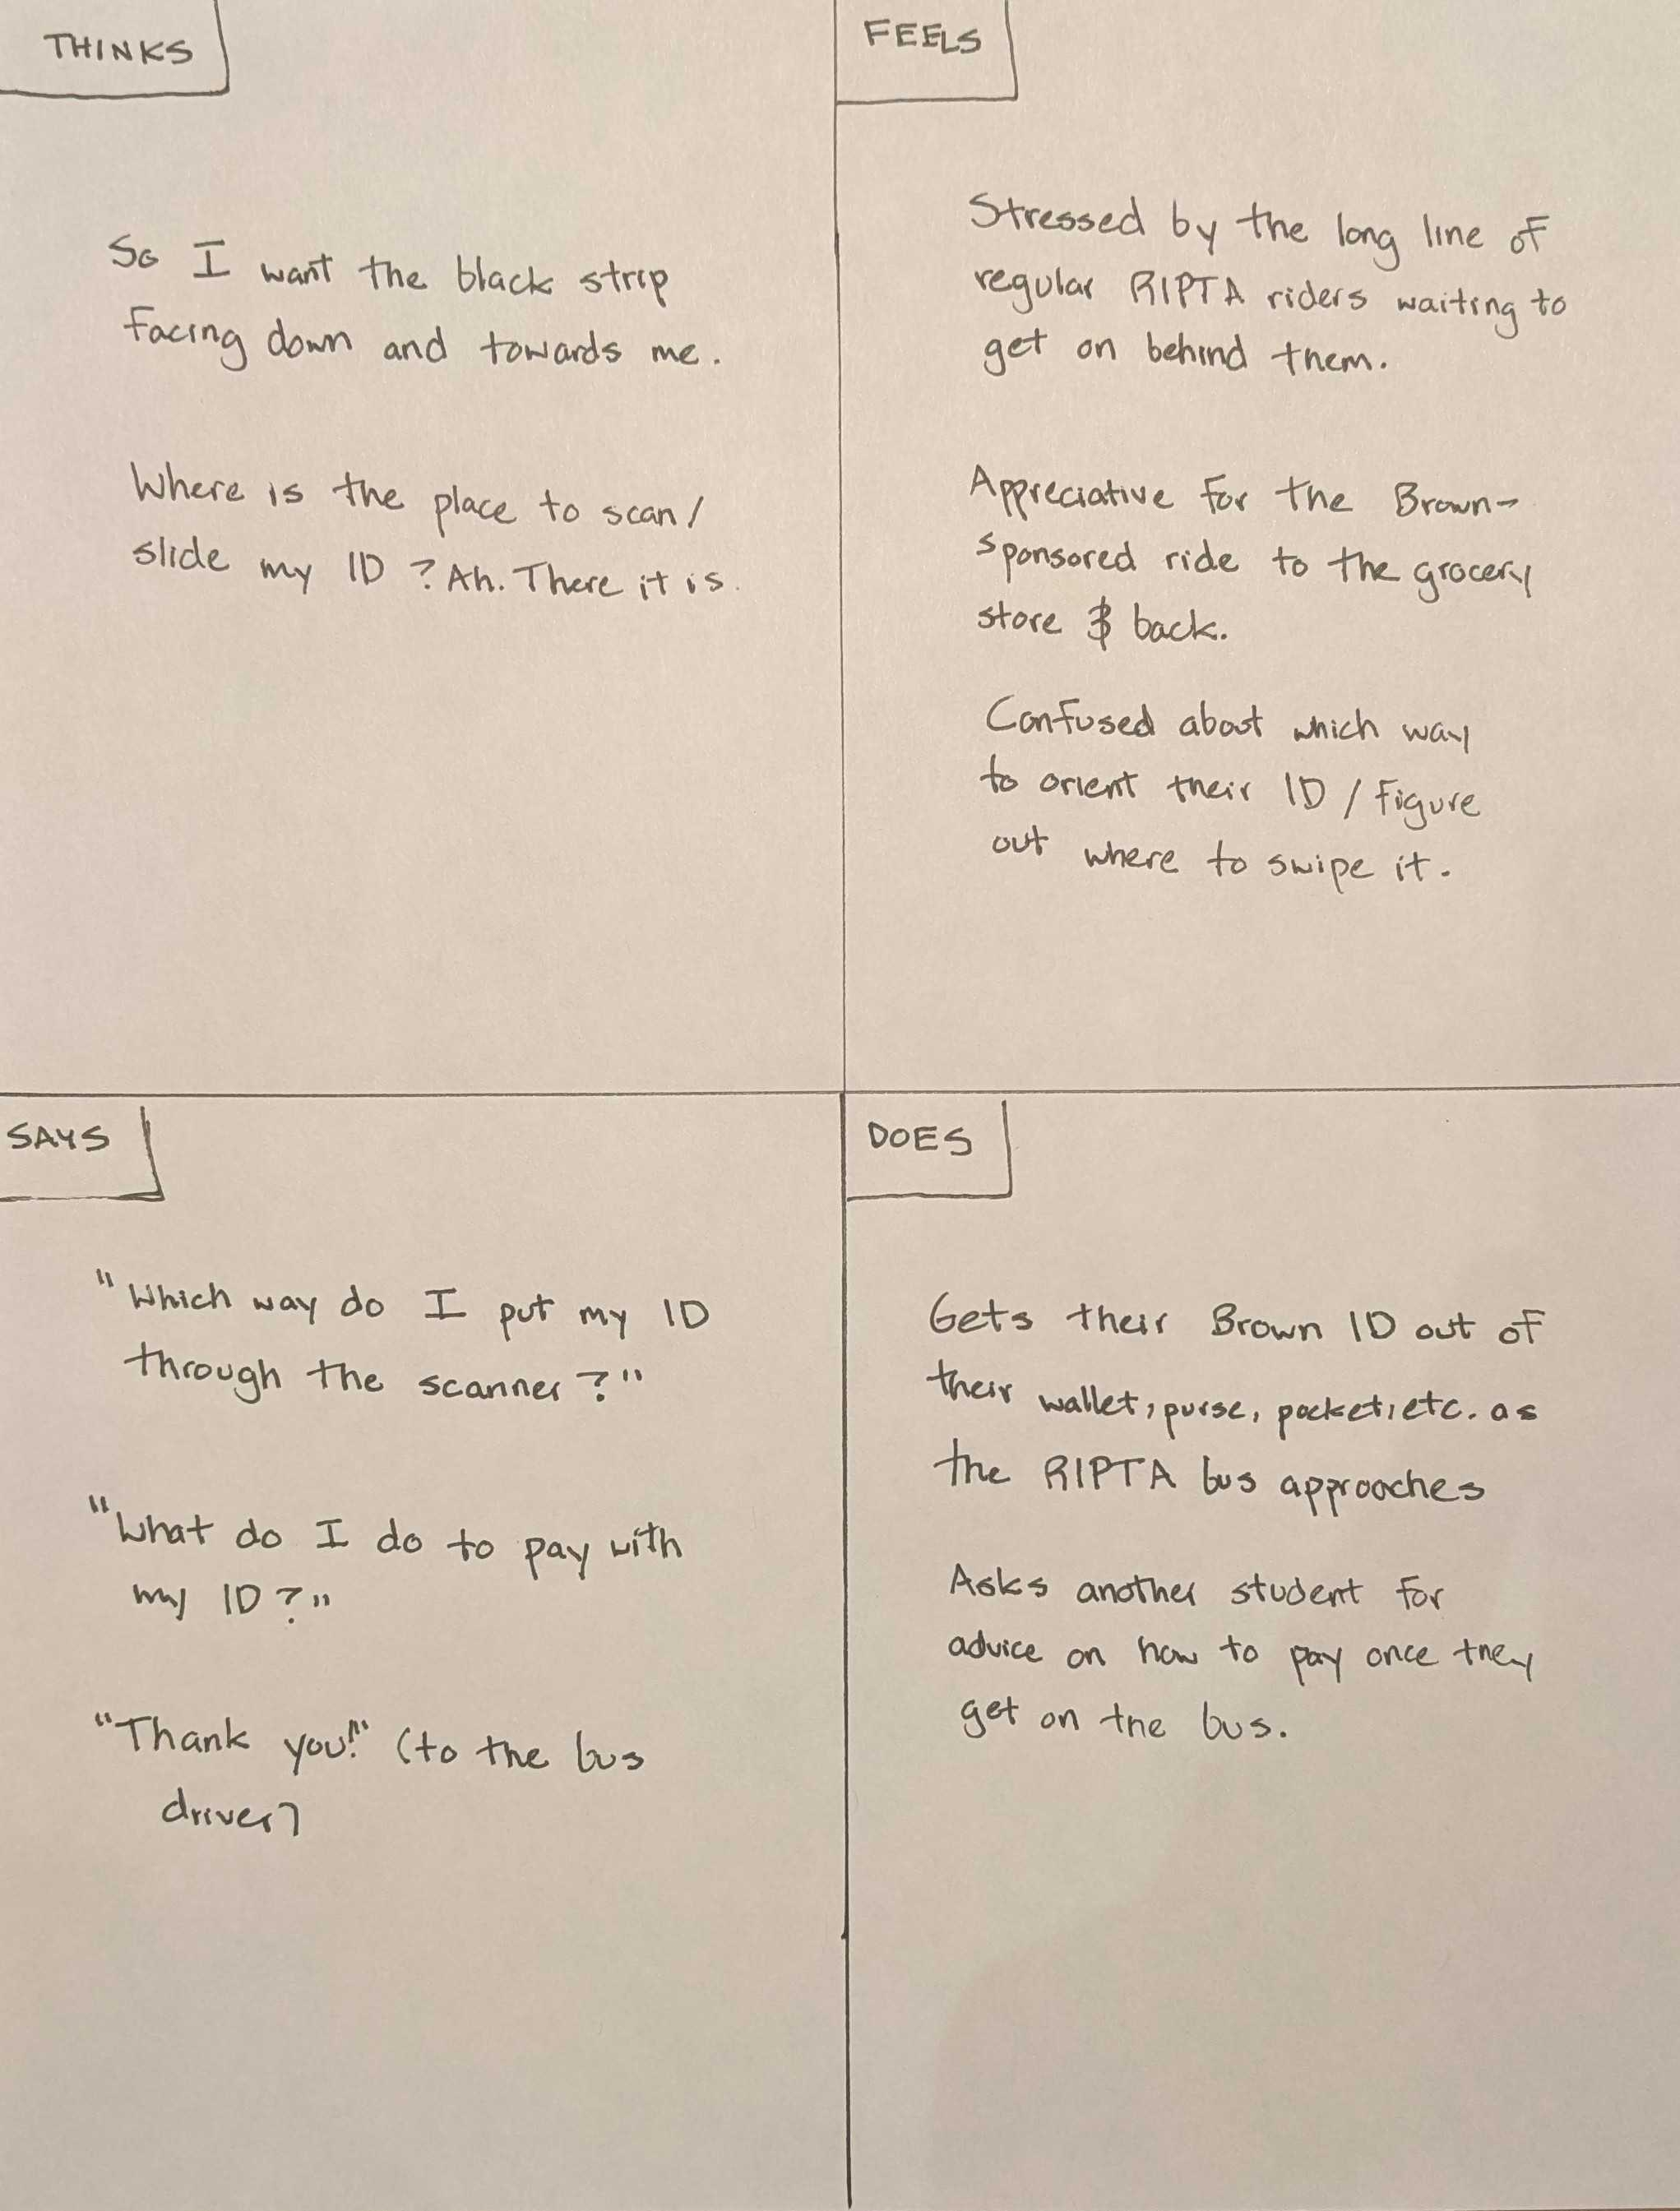 THINKS
So I want the black strip
facing down and towards me.
Where is the place to scan/
slide my ID? Ah. There it is.
FEELS
Stressed by the long line of
regular RIPTA riders waiting to
get on behind them.
Appreciative for the Brown-
sponsored ride to the grocery
store & back.
Confused about which way
to orient their ID / figure
out where to swipe it.
SAYS
"Which way do I put my ID
through the scanner?"
"What do I do to pay with
my ID?"
"Thank you!" (to the bus
driver)
DOES
Gets their Brown ID out of
their wallet, purse, pocket, etc. as
the RIPTA bus approaches
Asks another student for
advice on how to pay once they
get on the bus.